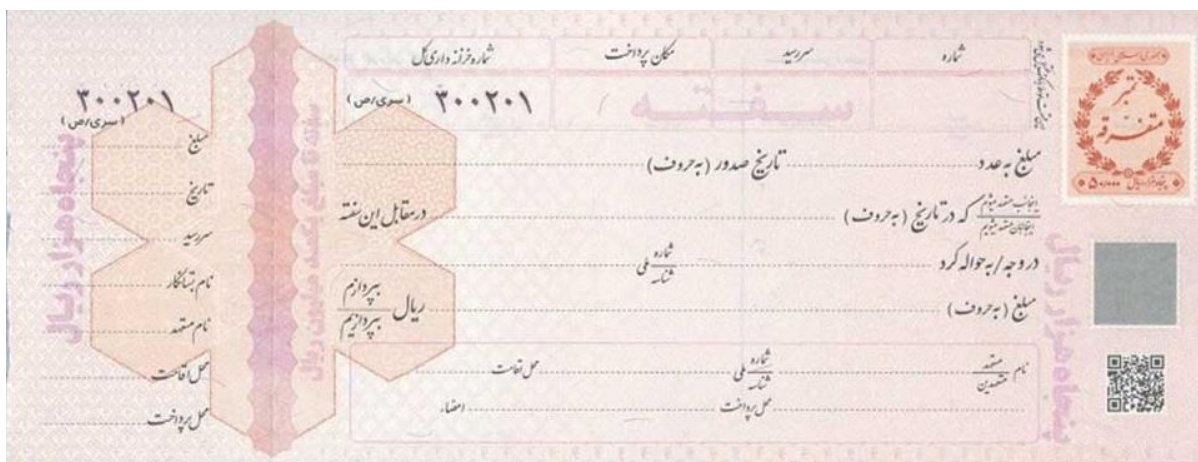 شماره
سررسید
مکان پرداخت
شماره خزانه داری کل
۳۰۰۲۰۱ (سری/ص)
سفته
جمهوری اسلامی ایران
تمبر
متفرقه
پنجاه هزار ریال
۵۰/۰۰۰
مبلغ به عدد تاریخ صدور (به حروف)
اینجانب متعهد میشوم
اینجانبان متعهد میشویم
که در تاریخ (به حروف) در مقابل این سفته
در وجه / به حواله کرد شماره
شناسه
ملی
مبلغ (به حروف) ریال بپردازم
بپردازیم
نام متعهد
متعهدین
شماره
شناسه
ملی محل اقامت
محل پرداخت امضاء
پنجاه هزار ریال
سفته تا مبلغ یکصد میلیون ریال
۳۰۰۲۰۱
(سری/ص)
مبلغ
تاریخ
سررسید
نام بستانکار
نام متعهد
محل اقامت
محل پرداخت
پنجاه هزار ریال